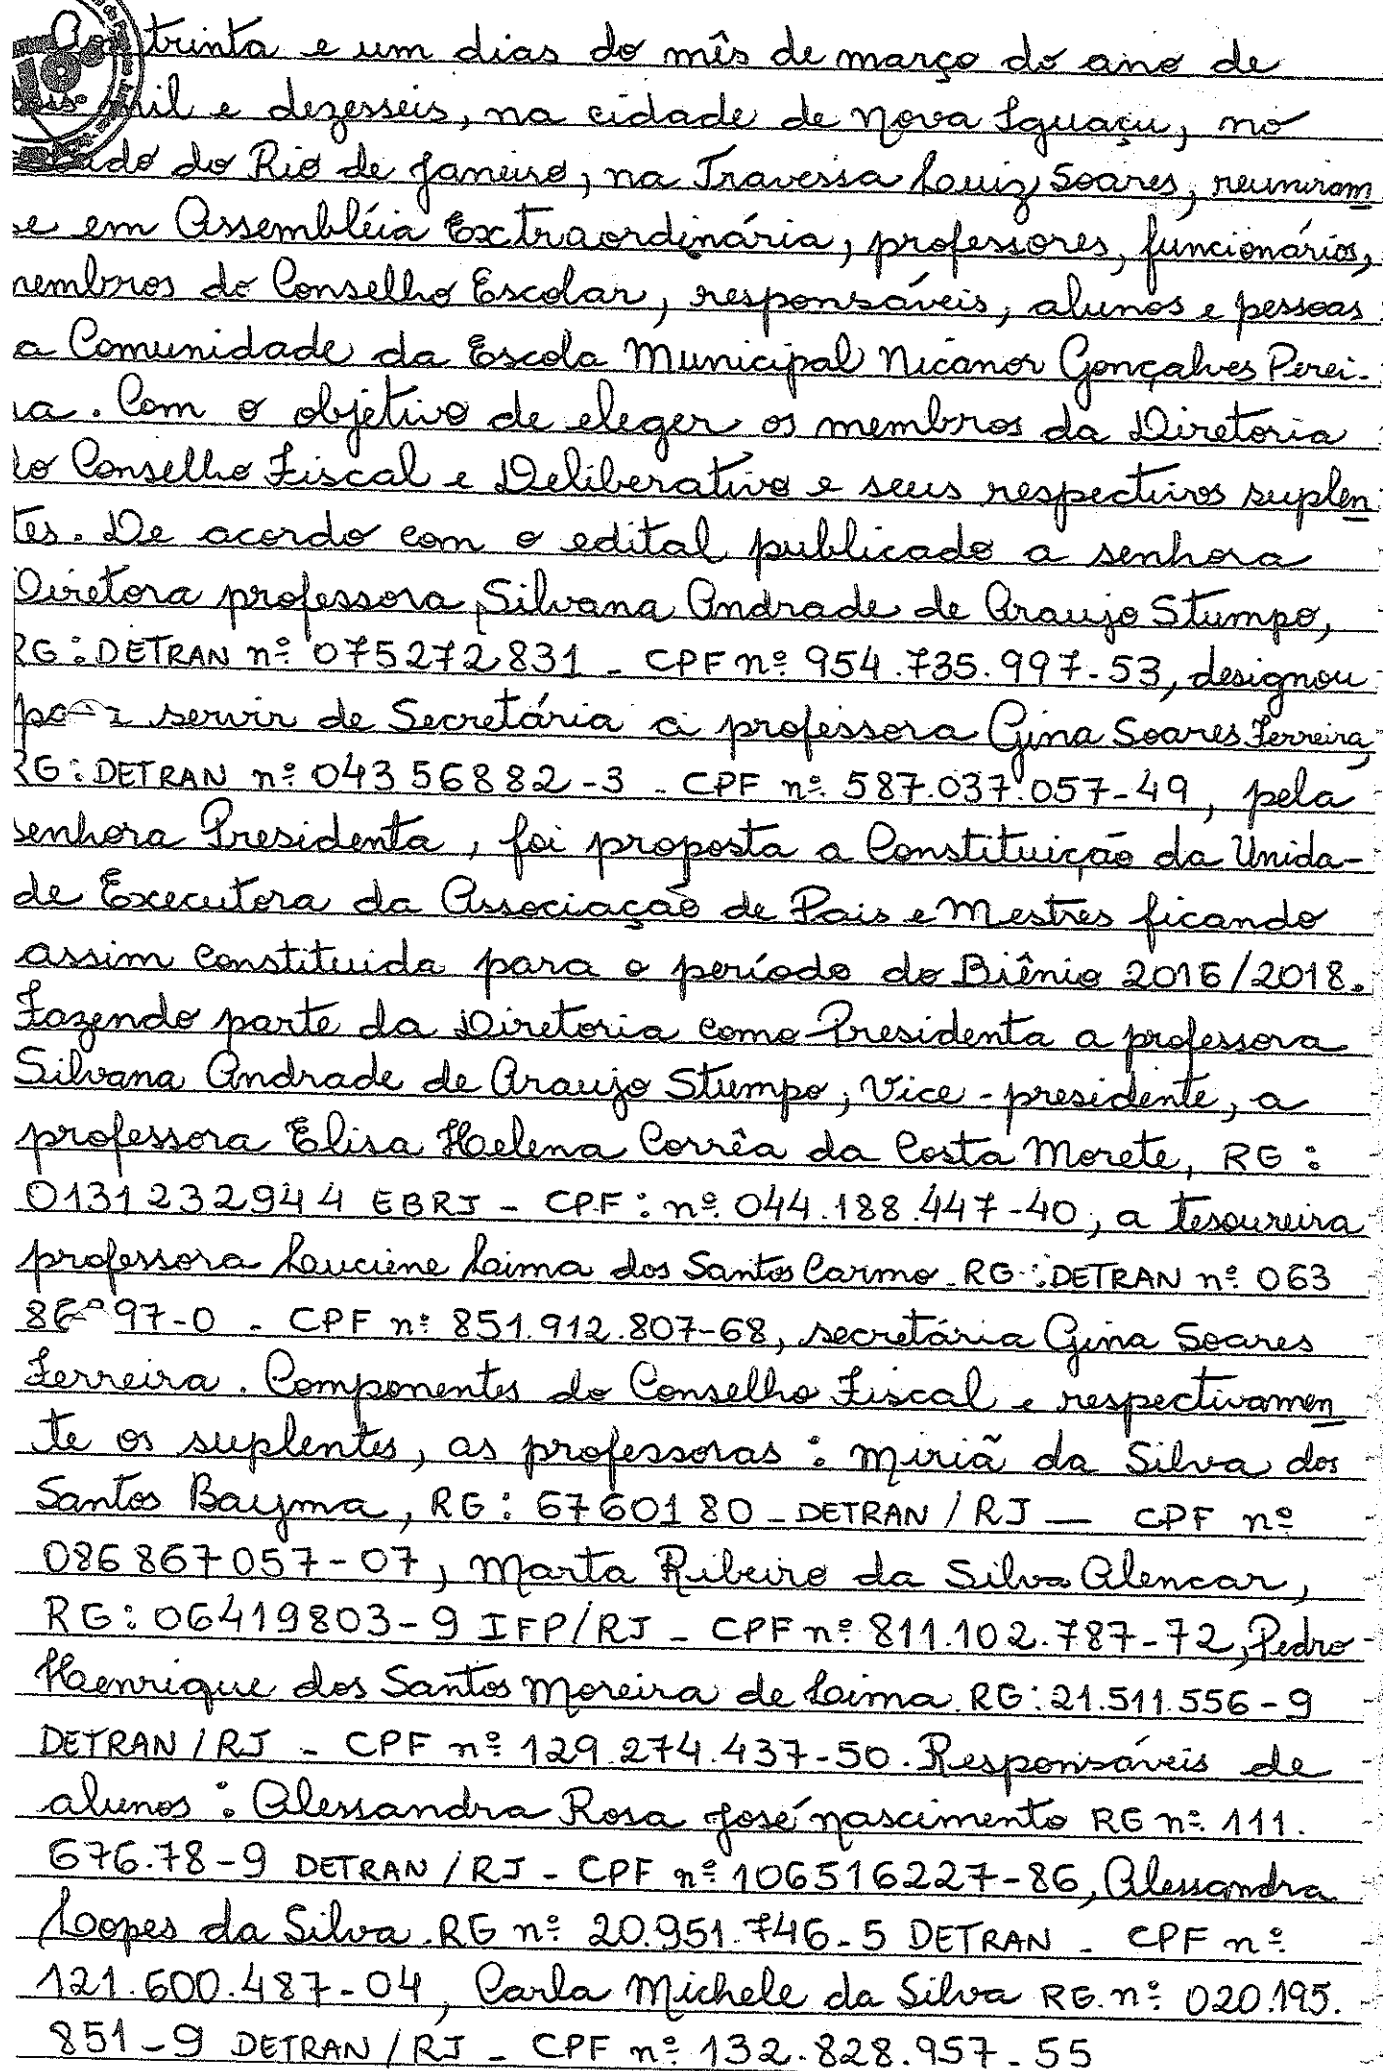 Aos trinta e um dias do mês de março do ano de
mil e dezesseis, na cidade de Nova Iguaçu, no
do Rio de Janeiro, na Travessa Luiz Soares, reuniram
se em Assembléia Extraordinária, professores, funcionários,
membros do Conselho Escolar, responsáveis, alunos e pessoas
a Comunidade da Escola Municipal Nicanor Gonçalves Perei-
ra. Com o objetivo de eleger os membros da Diretoria
do Conselho Fiscal e Deliberativo e seus respectivos suplen
tes. De acordo com o edital publicado a senhora
Diretora professora, Silvana Andrade de Araujo Stumpo,
RG: DETRAN nº 075272831 - CPF nº 954.735.997-53, designou
para servir de Secretária a professora Gina Soares Ferreira,
RG: DETRAN nº 04356882-3 - CPF nº 587.037.057-49, pela
senhora Presidenta, foi proposta a Constituição da Unida-
de Executora da Associação de Pais e Mestres ficando
assim constituida para o período do Biênio 2016/2018.
Fazendo parte da Diretoria como Presidenta a professora
Silvana Andrade de Araujo Stumpo, Vice-presidente, a
professora Elisa Helena Corrêa da Costa Morete, RG:
0131232944 EBRJ - CPF: nº 044.188.447-40, a tesoureira
professora Luciene Lima dos Santos Carmo. RG: DETRAN nº 063
97-0 - CPF nº 851.912.807-68, secretária Gina Soares
Ferreira. Componentes do Conselho Fiscal e respectivamen
te os suplentes, as professoras: Miriã da Silva dos
Santos Bayma, RG: 6760180 - DETRAN/RJ — CPF nº
086867057-07, Marta Ribeiro da Silva Alencar,
RG: 06419803-9 IFP/RJ - CPF nº 811.102.787-72, Pedro
Henrique dos Santos Moreira de Lima. RG: 21.511.556-9
DETRAN/RJ - CPF nº 129.274.437-50. Responsáveis de
alunos: Alessandra Rosa José Nascimento RG nº 111.
676.78-9 DETRAN/RJ - CPF nº 106516227-86, Alessandra
Lopes da Silva. RG nº 20.951.746-5 DETRAN - CPF nº
121.600.487-04, Carla Michele da Silva RG. nº 020.195.
851-9 DETRAN/RJ - CPF nº 132.828.957-55